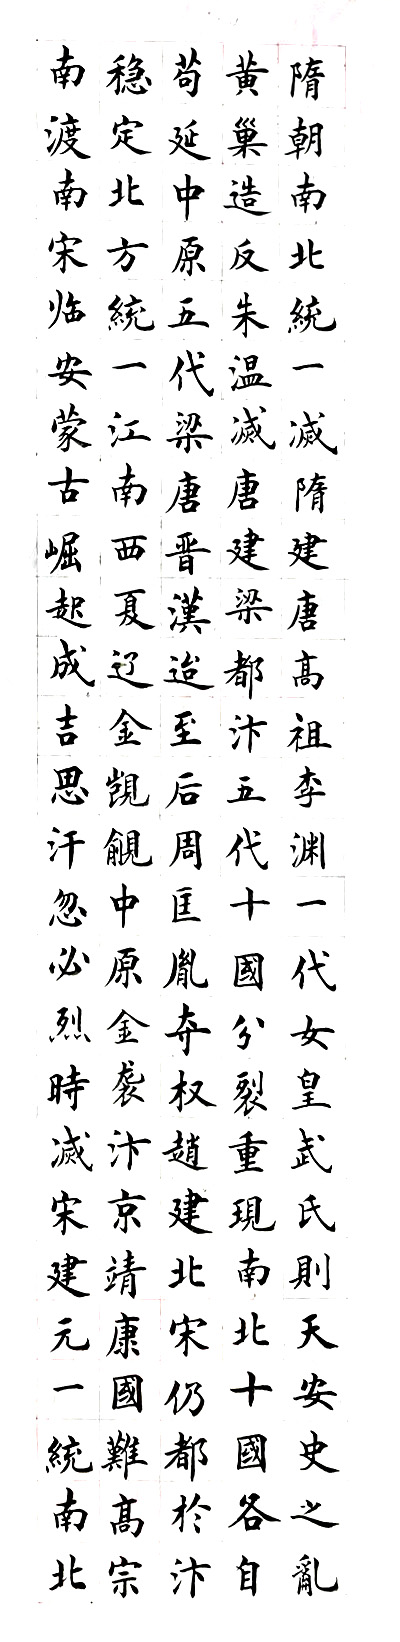 隋朝南北統一滅隋建唐高祖李渊一代女皇武氏則天安史之亂
黄巢造反朱温滅唐建梁都汴五代十國分裂重現南北十國各自
苟延中原五代梁唐晋漢迨至后周匡胤夺权趙建北宋仍都於汴
穏定北方統一江南西夏辽金覬覦中原金袭汴京靖康國難高宗
南渡南宋临安蒙古崛起成吉思汗忽必烈時滅宋建元一統南北